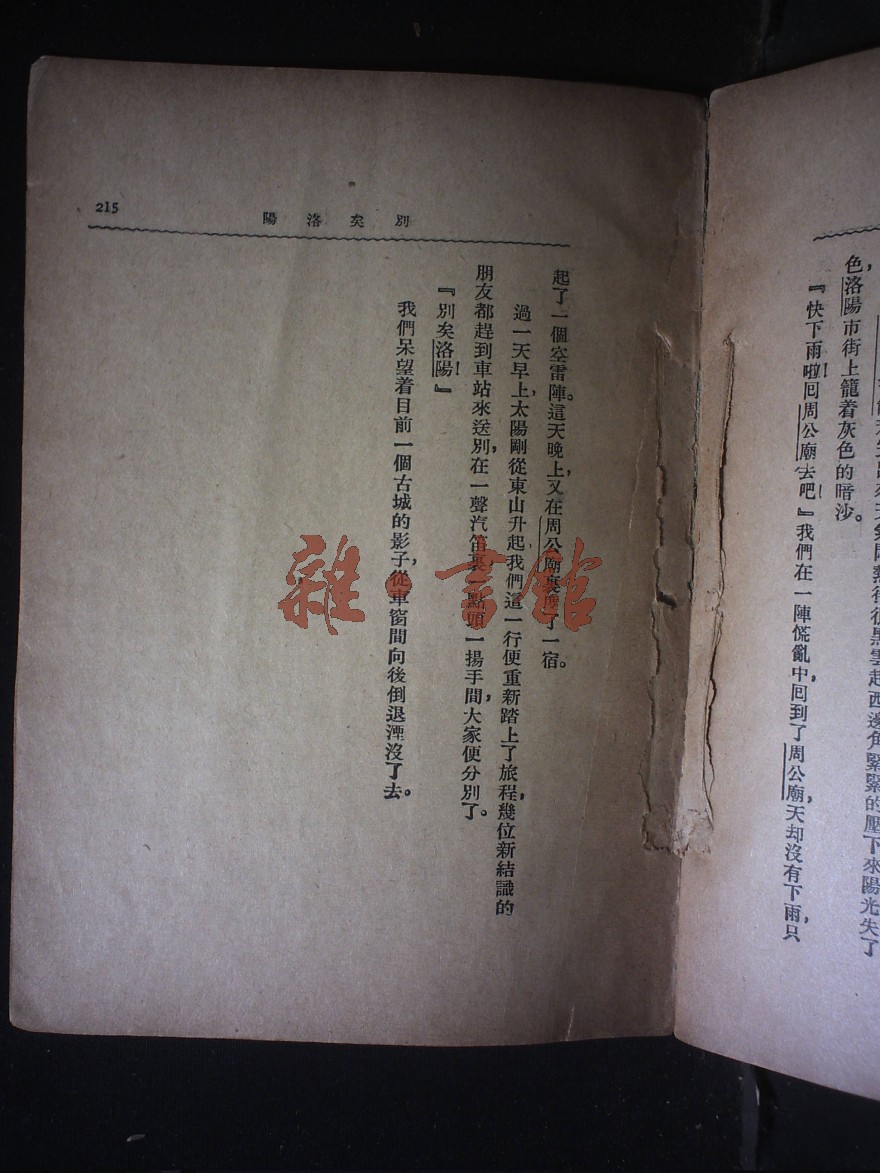 色，洛陽市街上籠着灰色的暗沙。
『快下雨啦！回周公廟去吧！』我們在一陣慌亂中，回到了周公廟，天却沒有下雨，只
215
別矣洛陽
起了一個空雷陣。這天晚上，又在周公廟裏度了一宿。
過一天早上，太陽剛從東山升起，我們這一行便重新踏上了旅程，幾位新結識的
朋友都趕到車站來送別，在一聲汽笛裏，一點頭一揚手間，大家便分別了。
『別矣洛陽！』
我們呆望着目前一個古城的影子，從車窗間向後倒退湮沒了去。
雜·書館